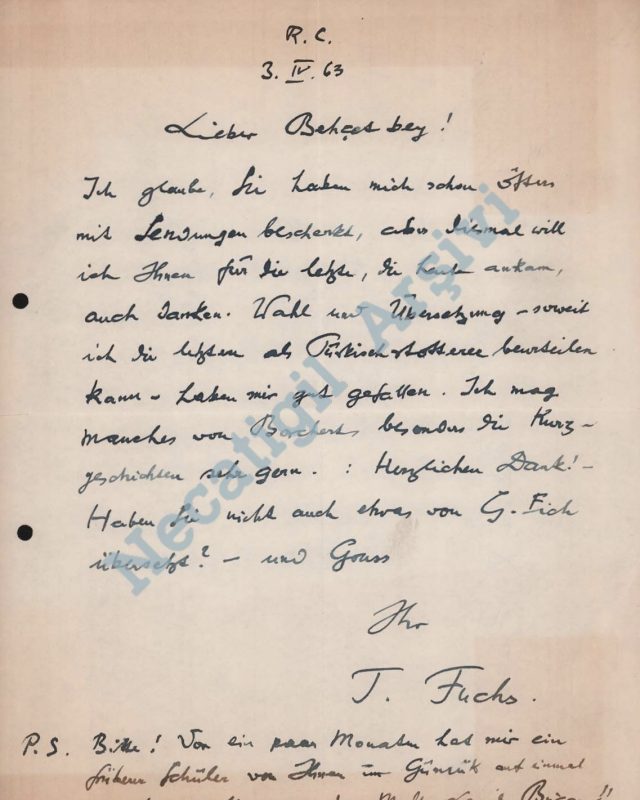 R. C.
3. IV. 63
Lieber Behçet bey!
Ich glaube, Sie haben mich schon öfters
mit Sendungen beschenkt, aber diesmal will
ich Ihnen für die letzte, die heute ankam,
auch danken. Wahl und Übersetzung – soweit
ich die letztere als Türkischstotterer beurteilen
kann – haben mir gut gefallen. Ich mag
manches von Borcherts besonders die Kurz-
geschichten sehr gern. : Herzlichen Dank! –
Haben Sie nicht auch etwas von G. Eich
übersetzt? – und Grass
Ihr
T. Fuchs.
P.S. Bitte! Vor ein paar Monaten hat mir ein
früherer Schüler von Ihnen im auf einmal
Necatigil Arşivi